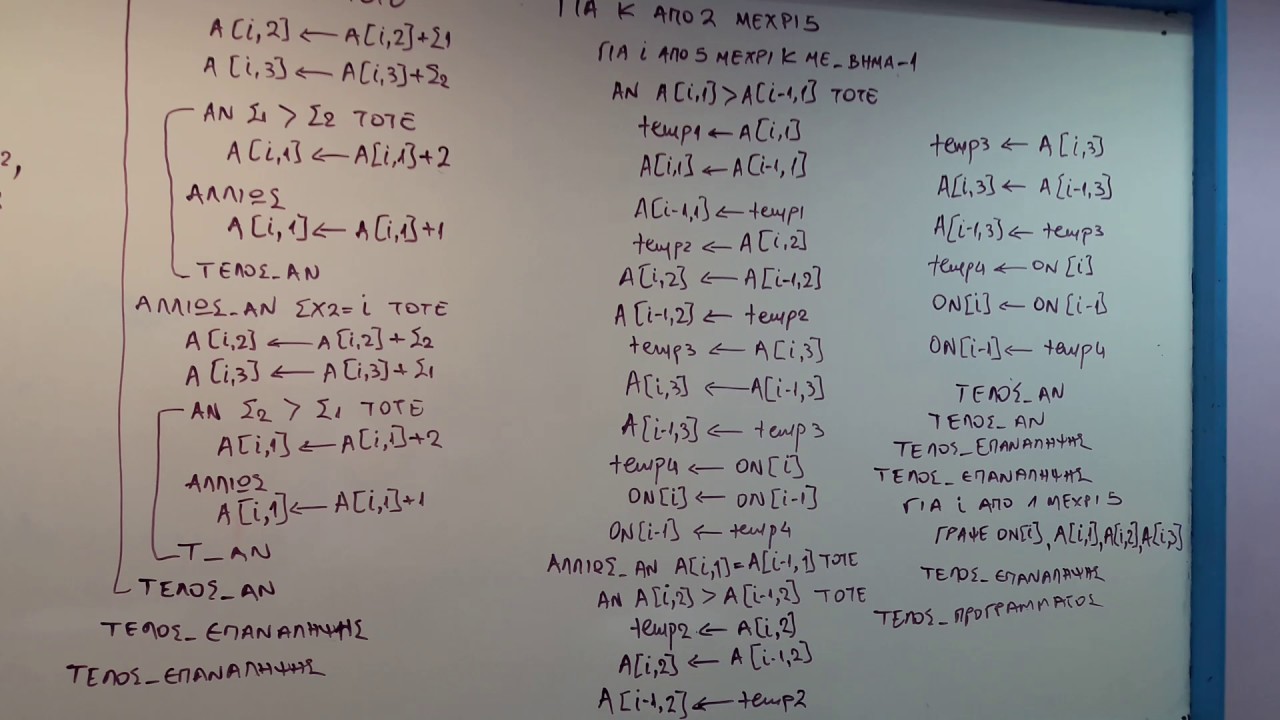 2,
A[i,2] ← A[i,2]+Σ1
A[i,3] ← A[i,3]+Σ2
ΑΝ Σ1 > Σ2 ΤΟΤΕ
A[i,1] ← A[i,1]+2
ΑΛΛΙΩΣ
A[i,1] ← A[i,1]+1
ΤΕΛΟΣ_ΑΝ
ΑΛΛΙΩΣ_ΑΝ ΣΧ2= i ΤΟΤΕ
A[i,2] ← A[i,2]+Σ2
A[i,3] ← A[i,3]+Σ1
ΑΝ Σ2 > Σ1 ΤΟΤΕ
A[i,1] ← A[i,1]+2
ΑΛΛΙΩΣ
A[i,1] ← A[i,1]+1
Τ_ΑΝ
ΤΕΛΟΣ_ΑΝ
ΤΕΛΟΣ_ΕΠΑΝΑΛΗΨΗΣ
ΤΕΛΟΣ_ΕΠΑΝΑΛΗΨΗΣ
ΓΙΑ Κ ΑΠΟ 2 ΜΕΧΡΙ 5
ΓΙΑ i ΑΠΟ 5 ΜΕΧΡΙ Κ ΜΕ_ΒΗΜΑ -1
ΑΝ A[i,1] > A[i-1,1] ΤΟΤΕ
temp1 ← A[i,1]
A[i,1] ← A[i-1,1]
A[i-1,1] ← temp1
temp2 ← A[i,2]
A[i,2] ← A[i-1,2]
A[i-1,2] ← temp2
temp3 ← A[i,3]
A[i,3] ← A[i-1,3]
A[i-1,3] ← temp3
temp4 ← ΟΝ[i]
ΟΝ[i] ← ΟΝ[i-1]
ΟΝ[i-1] ← temp4
ΑΛΛΙΩΣ_ΑΝ A[i,1]=A[i-1,1] ΤΟΤΕ
ΑΝ A[i,2] > A[i-1,2] ΤΟΤΕ
temp2 ← A[i,2]
A[i,2] ← A[i-1,2]
A[i-1,2] ← temp2
temp3 ← A[i,3]
A[i,3] ← A[i-1,3]
A[i-1,3] ← temp3
temp4 ← ΟΝ[i]
ΟΝ[i] ← ΟΝ[i-1]
ΟΝ[i-1] ← temp4
ΤΕΛΟΣ_ΑΝ
ΤΕΛΟΣ_ΑΝ
ΤΕΛΟΣ_ΕΠΑΝΑΛΗΨΗΣ
ΤΕΛΟΣ_ΕΠΑΝΑΛΗΨΗΣ
ΓΙΑ i ΑΠΟ 1 ΜΕΧΡΙ 5
ΓΡΑΨΕ ΟΝ[i], A[i,1], A[i,2], A[i,3]
ΤΕΛΟΣ_ΕΠΑΝΑΛΗΨΗΣ
ΤΕΛΟΣ_ΠΡΟΓΡΑΜΜΑΤΟΣ